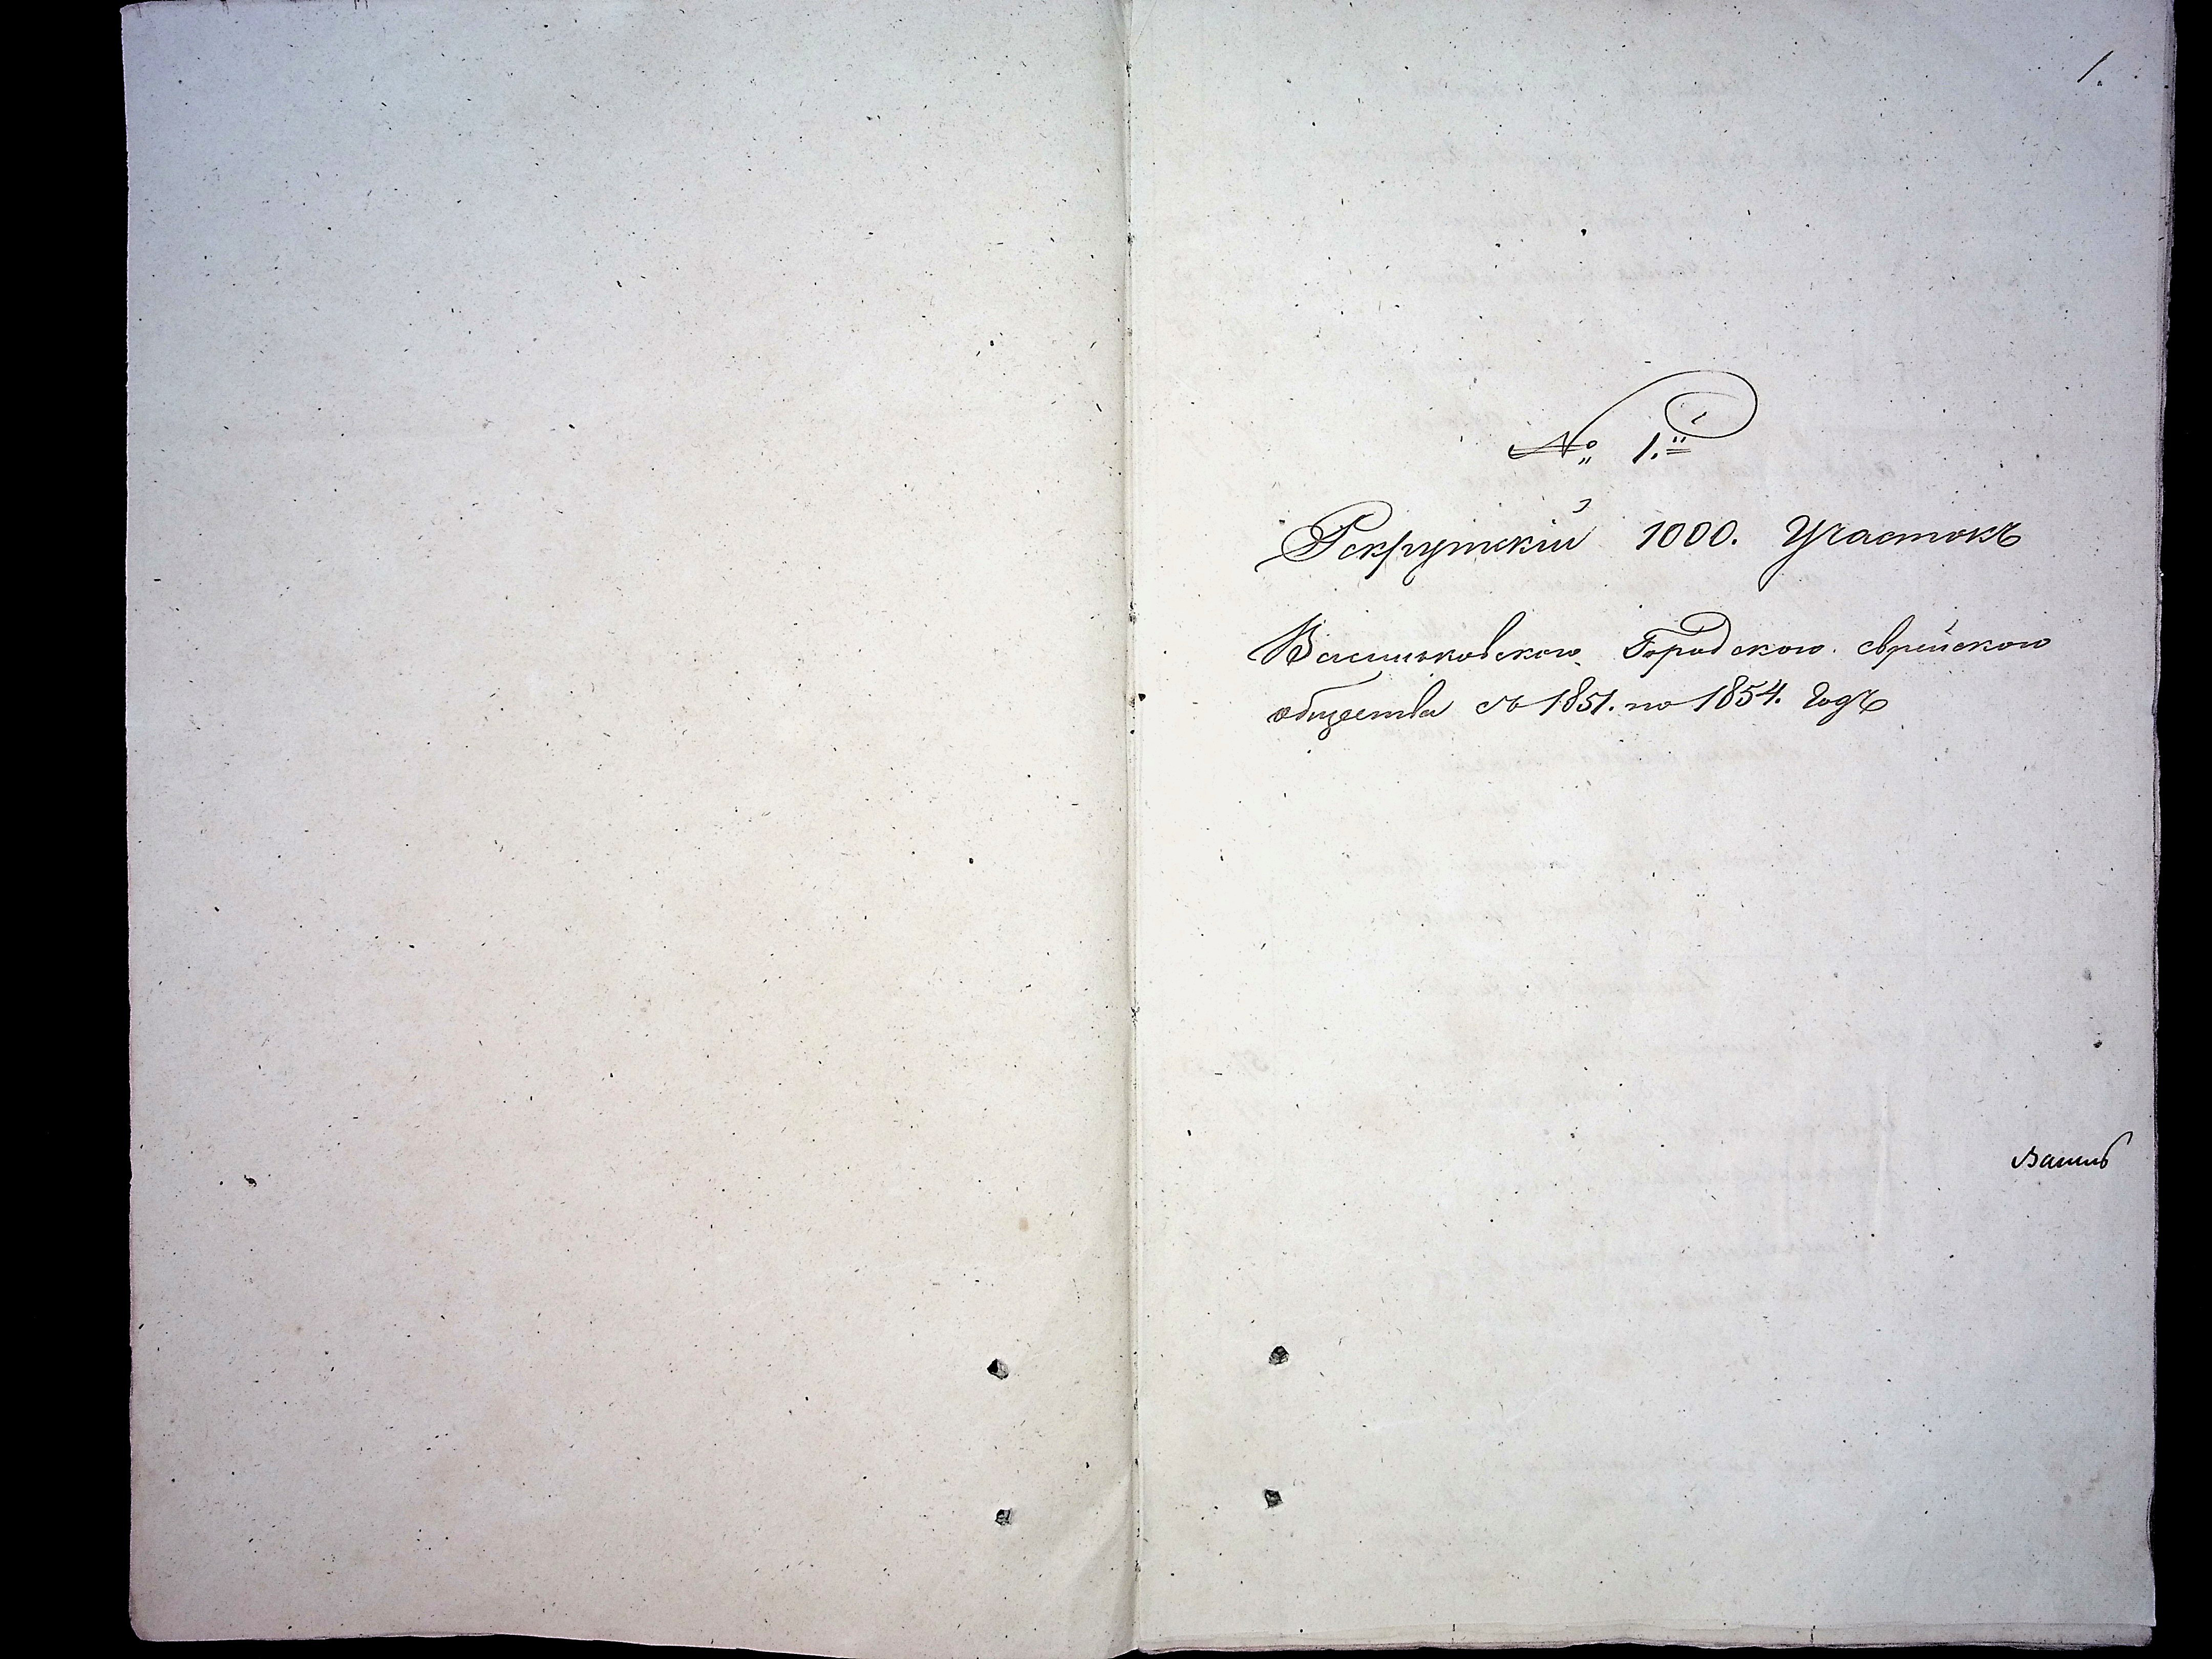 1.
№ 1.й
Рекрутскій 1000. Участокъ
Васильковскаго Городского еврейского
общества съ 1851. по 1854. годъ